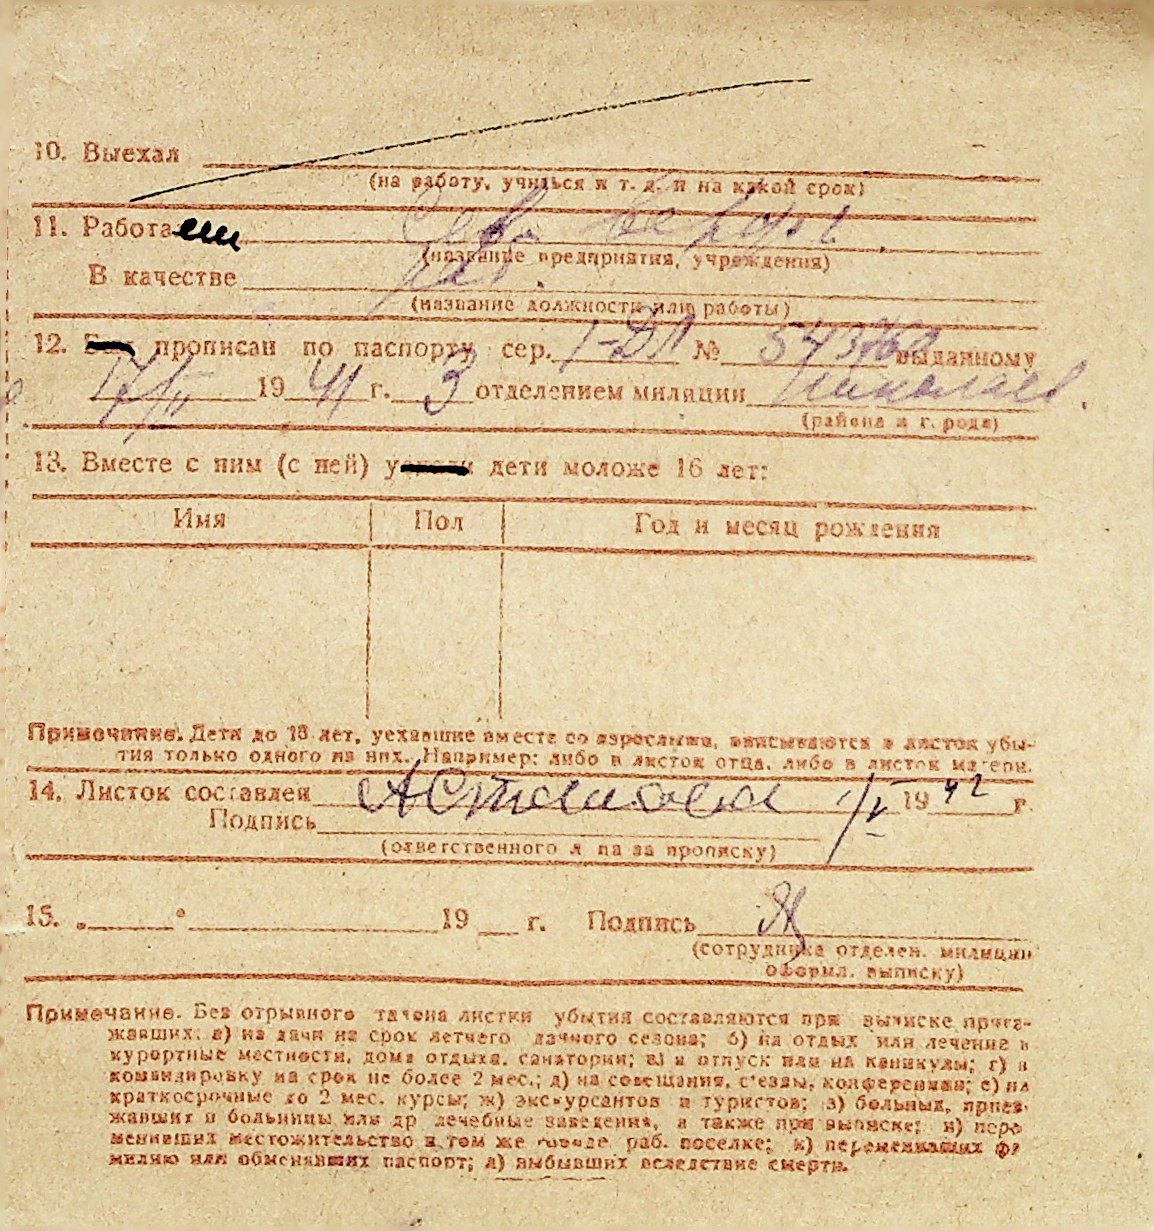 10. Выехал
(на работу, учиться и т. д. и на какой срок)
11. Работает Сев. верфь
(название предприятия, учреждения)
В качестве раб.
(название должности или работы)
12. прописан по паспорту сер. 1-ДЛ № выданному
17/II 19 41 г. 3 отделением милиции Николаев.
(района и города)
13. Вместе с ним (с ней) дети моложе 16 лет:
Имя Пол Год и месяц рождения
Примечание. Дети до 16 лет, уехавшие вместе со взрослыми, вписываются в листок убы-
тия только одного из них. Например: либо в листок отца, либо в листок матери.
14. Листок составлен 1/V 19 42 г.
Подпись
(ответственного л па за прописку)
15. „ " 19 г. Подпись
(сотрудника отделен. милиции
оформл. выписку)
Примечание. Без отрывного талона листки убытия составляются при выписке приез-
жавших: а) на дачи на срок летнего дачного сезона; б) на отдых или лечение в
курортные местности, дома отдыха, санатории; в) в отпуск или на каникулы; г) в
командировку на срок не более 2 мес.; д) на совещания, с'езды, конференции; е) на
краткосрочные до 2 мес. курсы; ж) экскурсантов и туристов; з) больных, приез-
жавших в больницы или др лечебные заведения, а также при выписке; и) пере
менивших местожительство в том же городе, раб. поселке; к) переменивших фа
милию или обменявших паспорт; л) выбывших вследствие смерти.